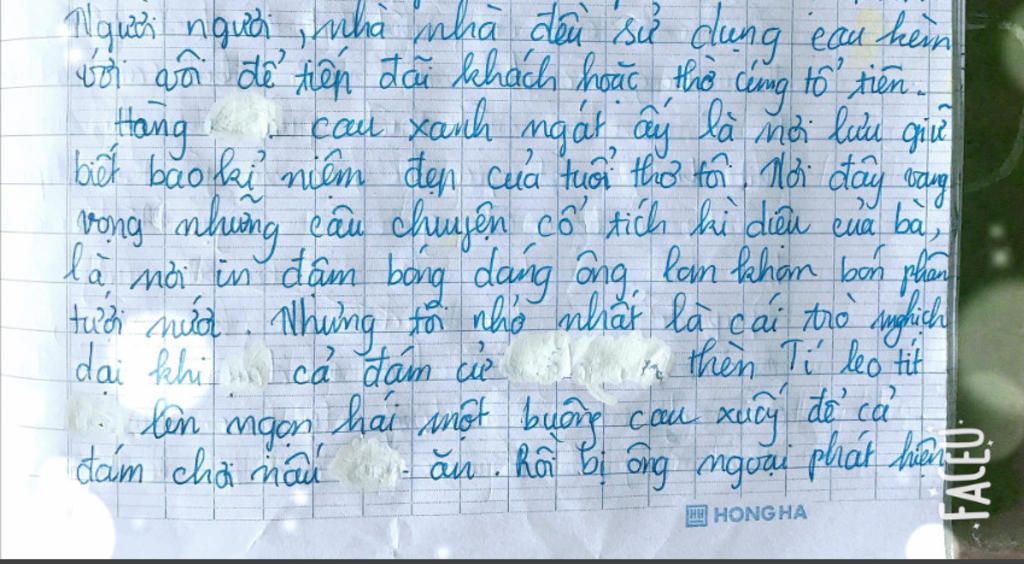 Người người, nhà nhà đều sử dụng cau kèm
với vôi để tiếp đãi khách hoặc thờ cúng tổ tiên.
Hàng cau xanh ngát ấy là nơi lưu giữ
biết bao kỉ niệm đẹp của tuổi thơ tôi. Nơi đây vang
vọng những câu chuyện cổ tích kì diệu của bà,
là nơi in đậm bóng dáng ông lom khom bón phân
tưới nước. Nhưng tôi nhớ nhất là cái trò nghịch
dại khi cả đám cử thèn Tí leo tít
lên ngọn hái một buồng cau xuống để cả
đám chơi nấu ăn. Rồi bị ông ngoại phát hiện
HONG HA
FALEU